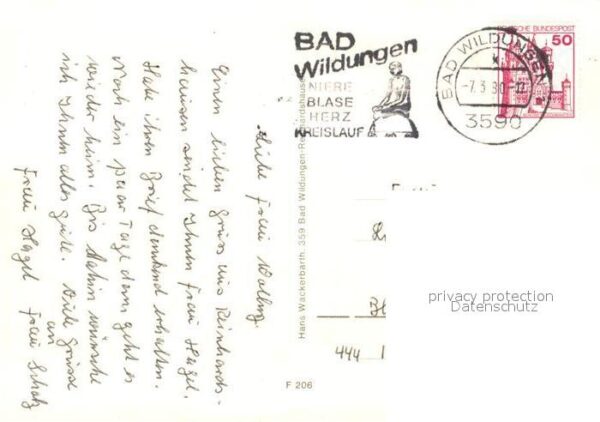 Liebe Frau Walling.
Einen lieben Gruß aus Reinhards-
hausen sendet Ihnen Frau Hagel.
Habe ihren Brief dankend erhalten.
Noch ein paar Tage dann geht es
wieder heim. Bis dahin wünsche
ich Ihnen alles gute. Viele Grüsse
an
Frau Hagel Frau Schatz
Hans Wackerbarth, 359 Bad Wildungen-Reinhardshausen
F 206
BAD
Wildungen
NIERE
BLASE
HERZ
KREISLAUF
BAD WILDUNGEN
-7.3.80-17
3590
DEUTSCHE BUNDESPOST
50
444
privacy protection
Datenschutz